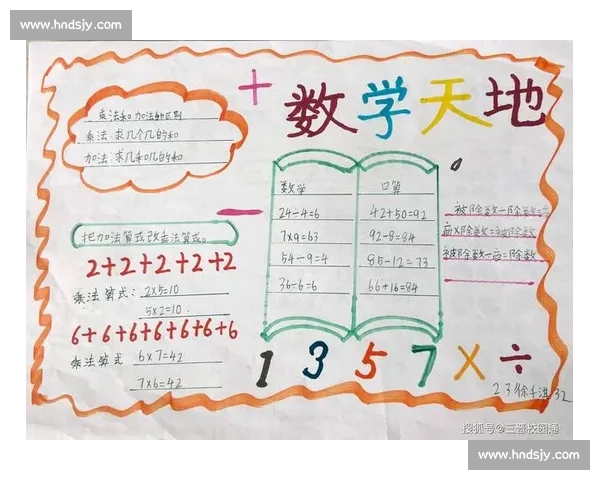 www.hndsjy.com
数学天地
+
乘法和加法的区别
乘法:求几个几的和
加法:求几和几的和
把加法算式改乘法算式。
2+2+2+2+2
乘法算式:2×5=10
5×2=10
6+6+6+6+6+6+6
乘法算式 6×7=42
7×6=42
数学
24÷4=6
7×9=63
54÷9=4
36÷6=6
口算
42+50=92
92-8=84
85-12=73
66+16=84
被除数÷除数=商
商×除数=被除数
被除数÷商=除数
1 3 5 7 × ÷
搜狐号@三晋校园通
www.hndsjy.com